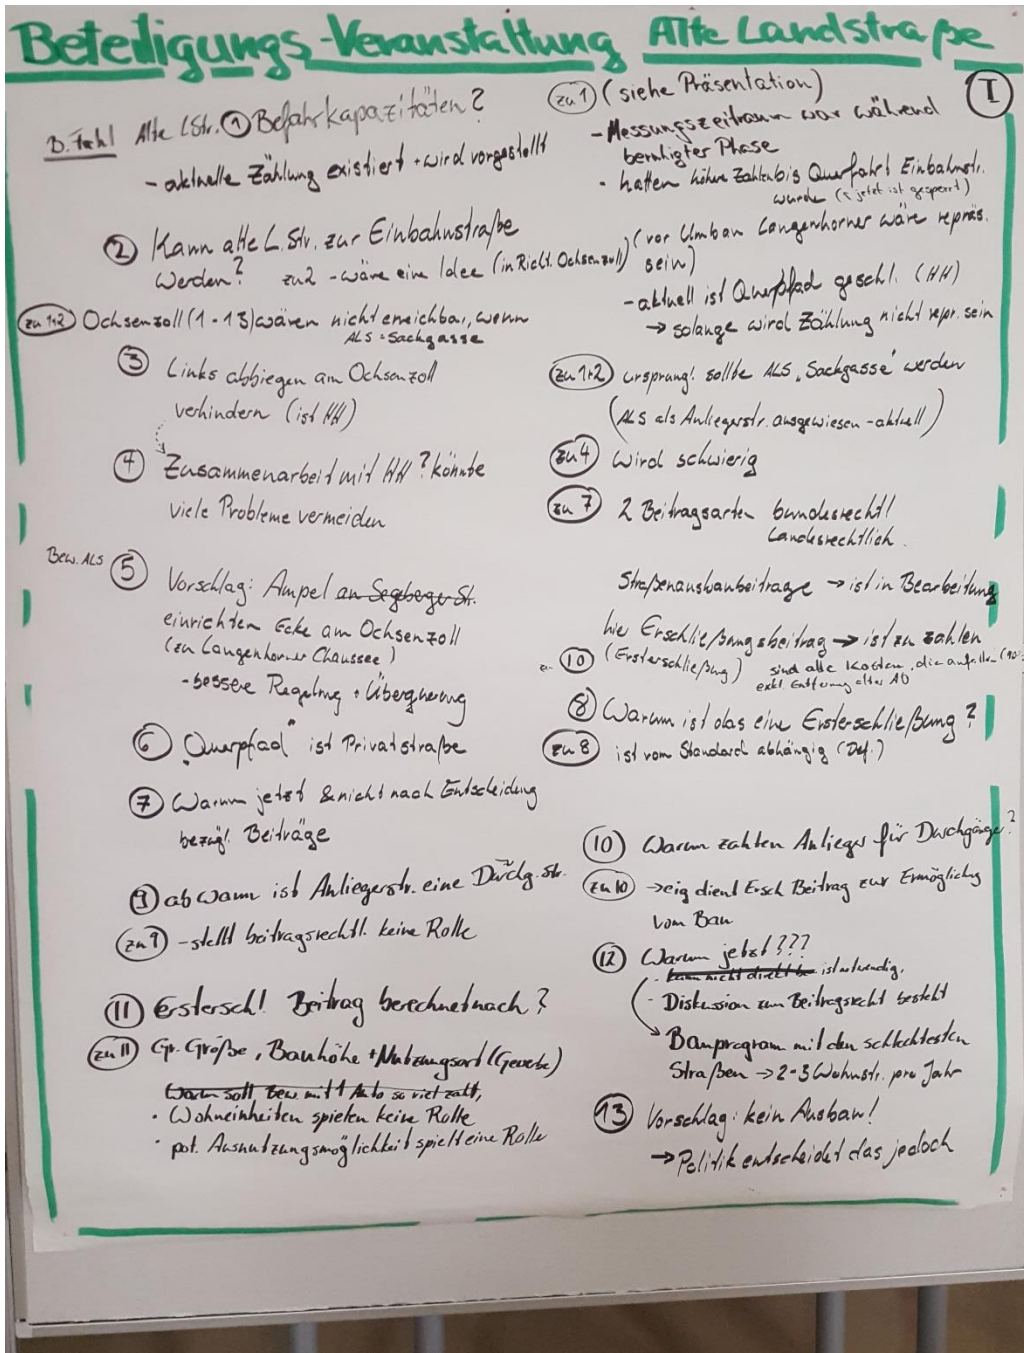 Beteiligungs-Veranstaltung Alte Landstraße
I
Alte LStr. ① Befahrkapazitäten?
- aktuelle Zählung existiert + wird vorgestellt
② Kann alte L. Str. zur Einbahnstraße
werden? zu2 - wäre eine Idee (in Richt. Ochsenzoll)
zu 1+2 Ochsenzoll (1-13) wären nicht erreichbar, wenn
ALS = Sackgasse
③ Links abbiegen am Ochsenzoll
verhindern (ist HH)
④ Zusammenarbeit mit HH? könnte
viele Probleme vermeiden
Bew. ALS ⑤ Vorschlag: Ampel an Segeberger Str.
einrichten Ecke am Ochsenzoll
(zu Langenhorner Chaussee)
- bessere Regelung + Überquerung
⑥ "Querpfad" ist Privatstraße
⑦ Warum jetzt & nicht nach Entscheidung
bezügl. Beiträge
⑨ ab wann ist Anliegerstr. eine Durchg. str.
zu 9 - stellt beitragsrechtl. keine Rolle
⑪ Erstersch! Beitrag berechnet nach?
zu 11 Gr. Größe, Bauhöhe + Nutzungsart (Gewerbe)
Warum soll Bew. mit 1 Auto so viel zahlt,
• Wohneinheiten spielen keine Rolle
• pot. Ausnutzungsmöglichkeit spielt eine Rolle
zu 1 (siehe Präsentation)
- Messungszeitraum war während
beruhigter Phase
• hatten höhere Zahlen bis Querfahrt Einbahnstr.
wurde (jetzt ist gesperrt)
(vor Umbau Langenhorner wäre repräs.
sein)
- aktuell ist Querpfad geschl. (HH)
→ solange wird Zählung nicht repr. sein
zu 1+2 ursprüngl. sollte ALS "Sackgasse" werden
(ALS als Anliegerstr. ausgewiesen - aktuell)
zu 4 wird schwierig
zu 7 2 Beitragsarten bundesrechtl
Landesrechtlich
Straßenausbaubeiträge → ist in Bearbeitung
hier Erschließungsbeitrag → ist zu zahlen
⑩ (Ersterschließung) sind alle Kosten, die anfallen
exkl. Entfernung alter
⑧ Warum ist das eine Ersterschließung?
zu 8 ist vom Standard abhängig (Def.)
⑩ Warum zahlen Anlieger für Durchgänge?
zu 10 → eig dient Ersch Beitrag zur Ermöglichg
vom Bau
⑫ Warum jetzt???
- kann nicht direkt be ist notwendig,
- Diskussion zum Beitragsrecht besteht
→ Bauprogram mit den schlechtesten
Straßen → 2-3 Wohnstr. pro Jahr
⑬ Vorschlag: kein Ausbau!
→ Politik entscheidet das jedoch